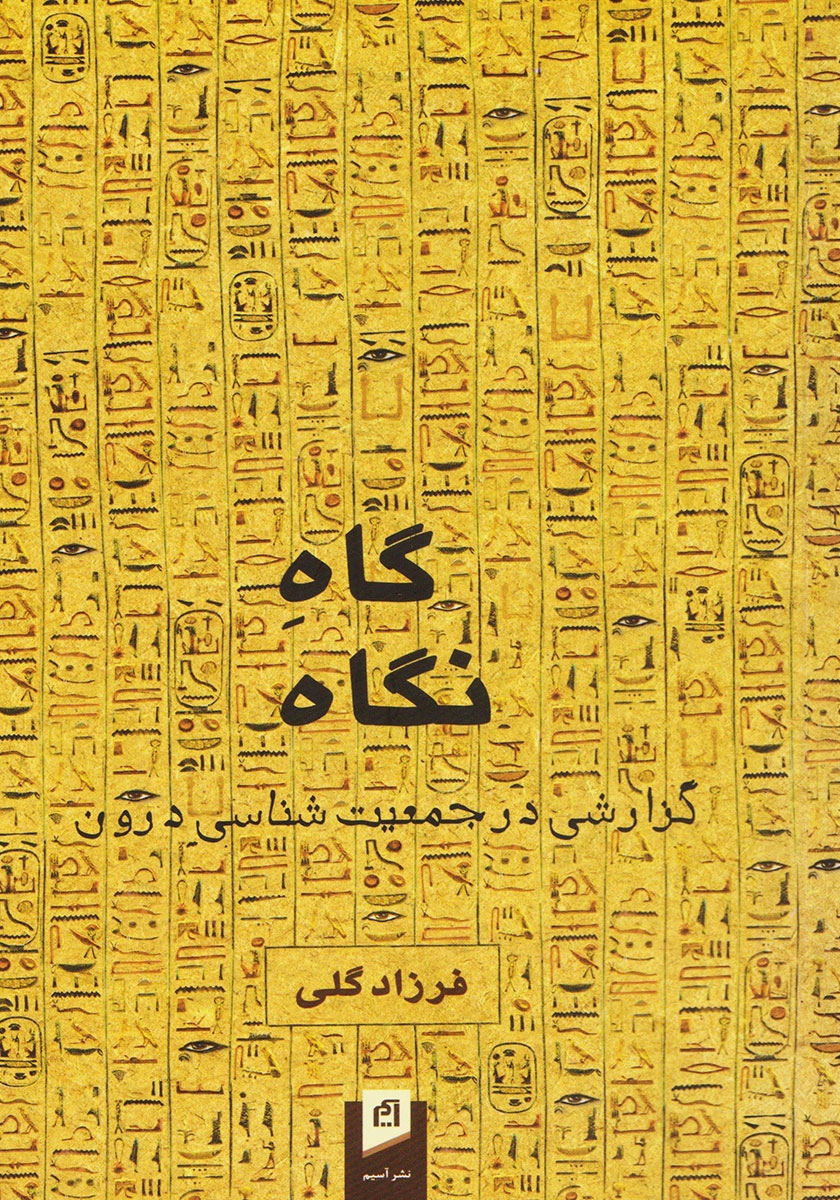 گاهِ
نگاه
گزارشی در جمعیت شناسیِ درون
فرزاد گلی
نشر آسیم